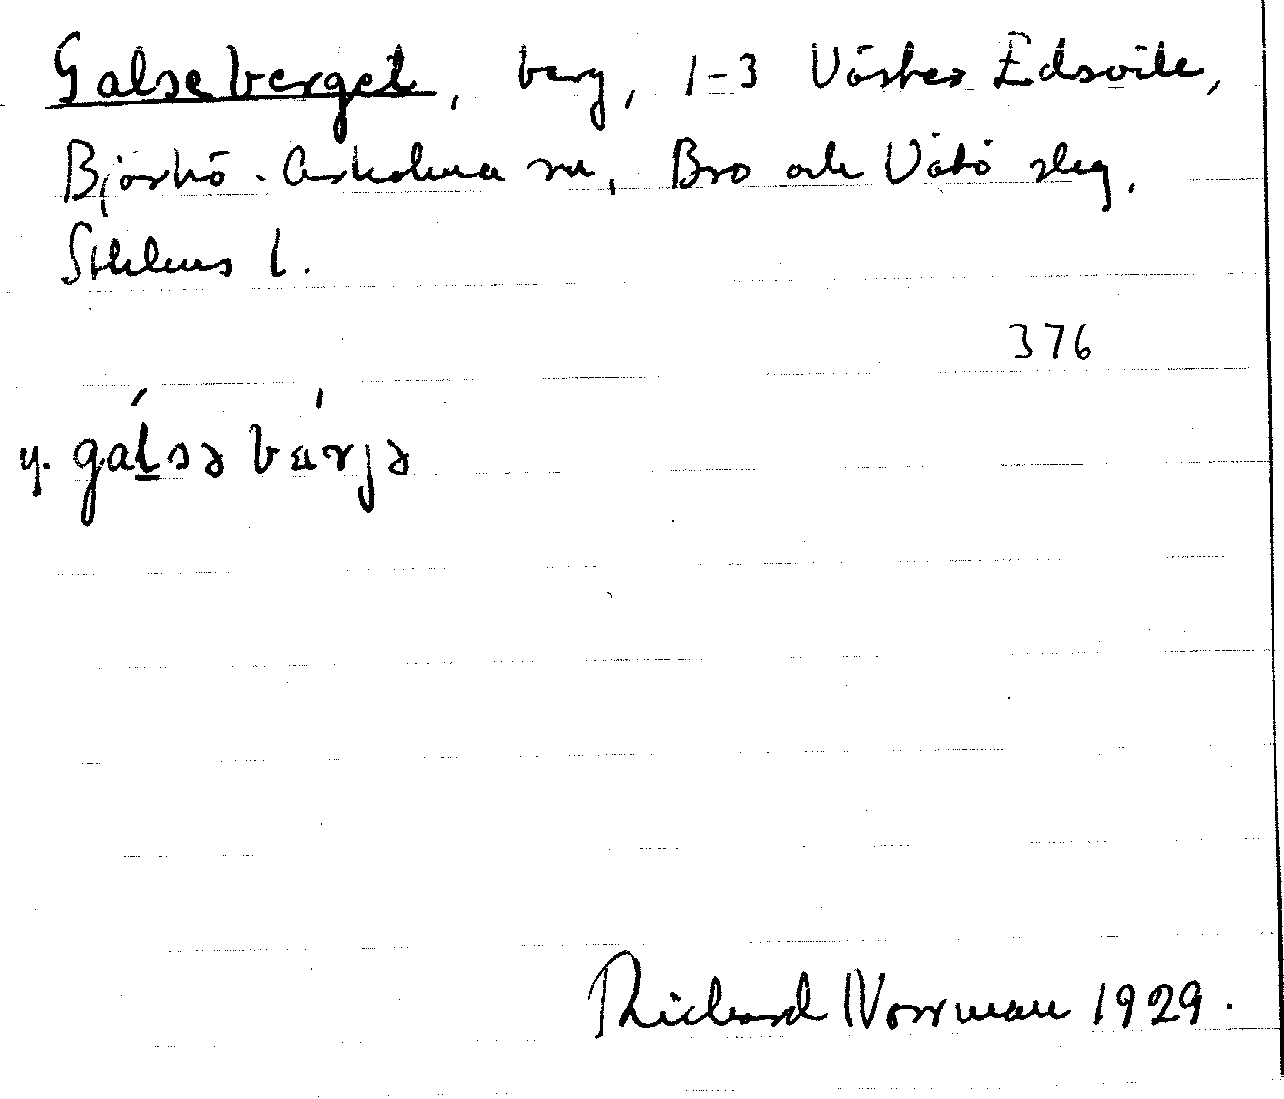 Galseberget, berg, 1-3 Väster Edsvik,
Björkö-Arholma sn, Bro och Vätö slg,
Sthlms l.
376
y. gaḻsə bärjə
Richard Norrman 1929.